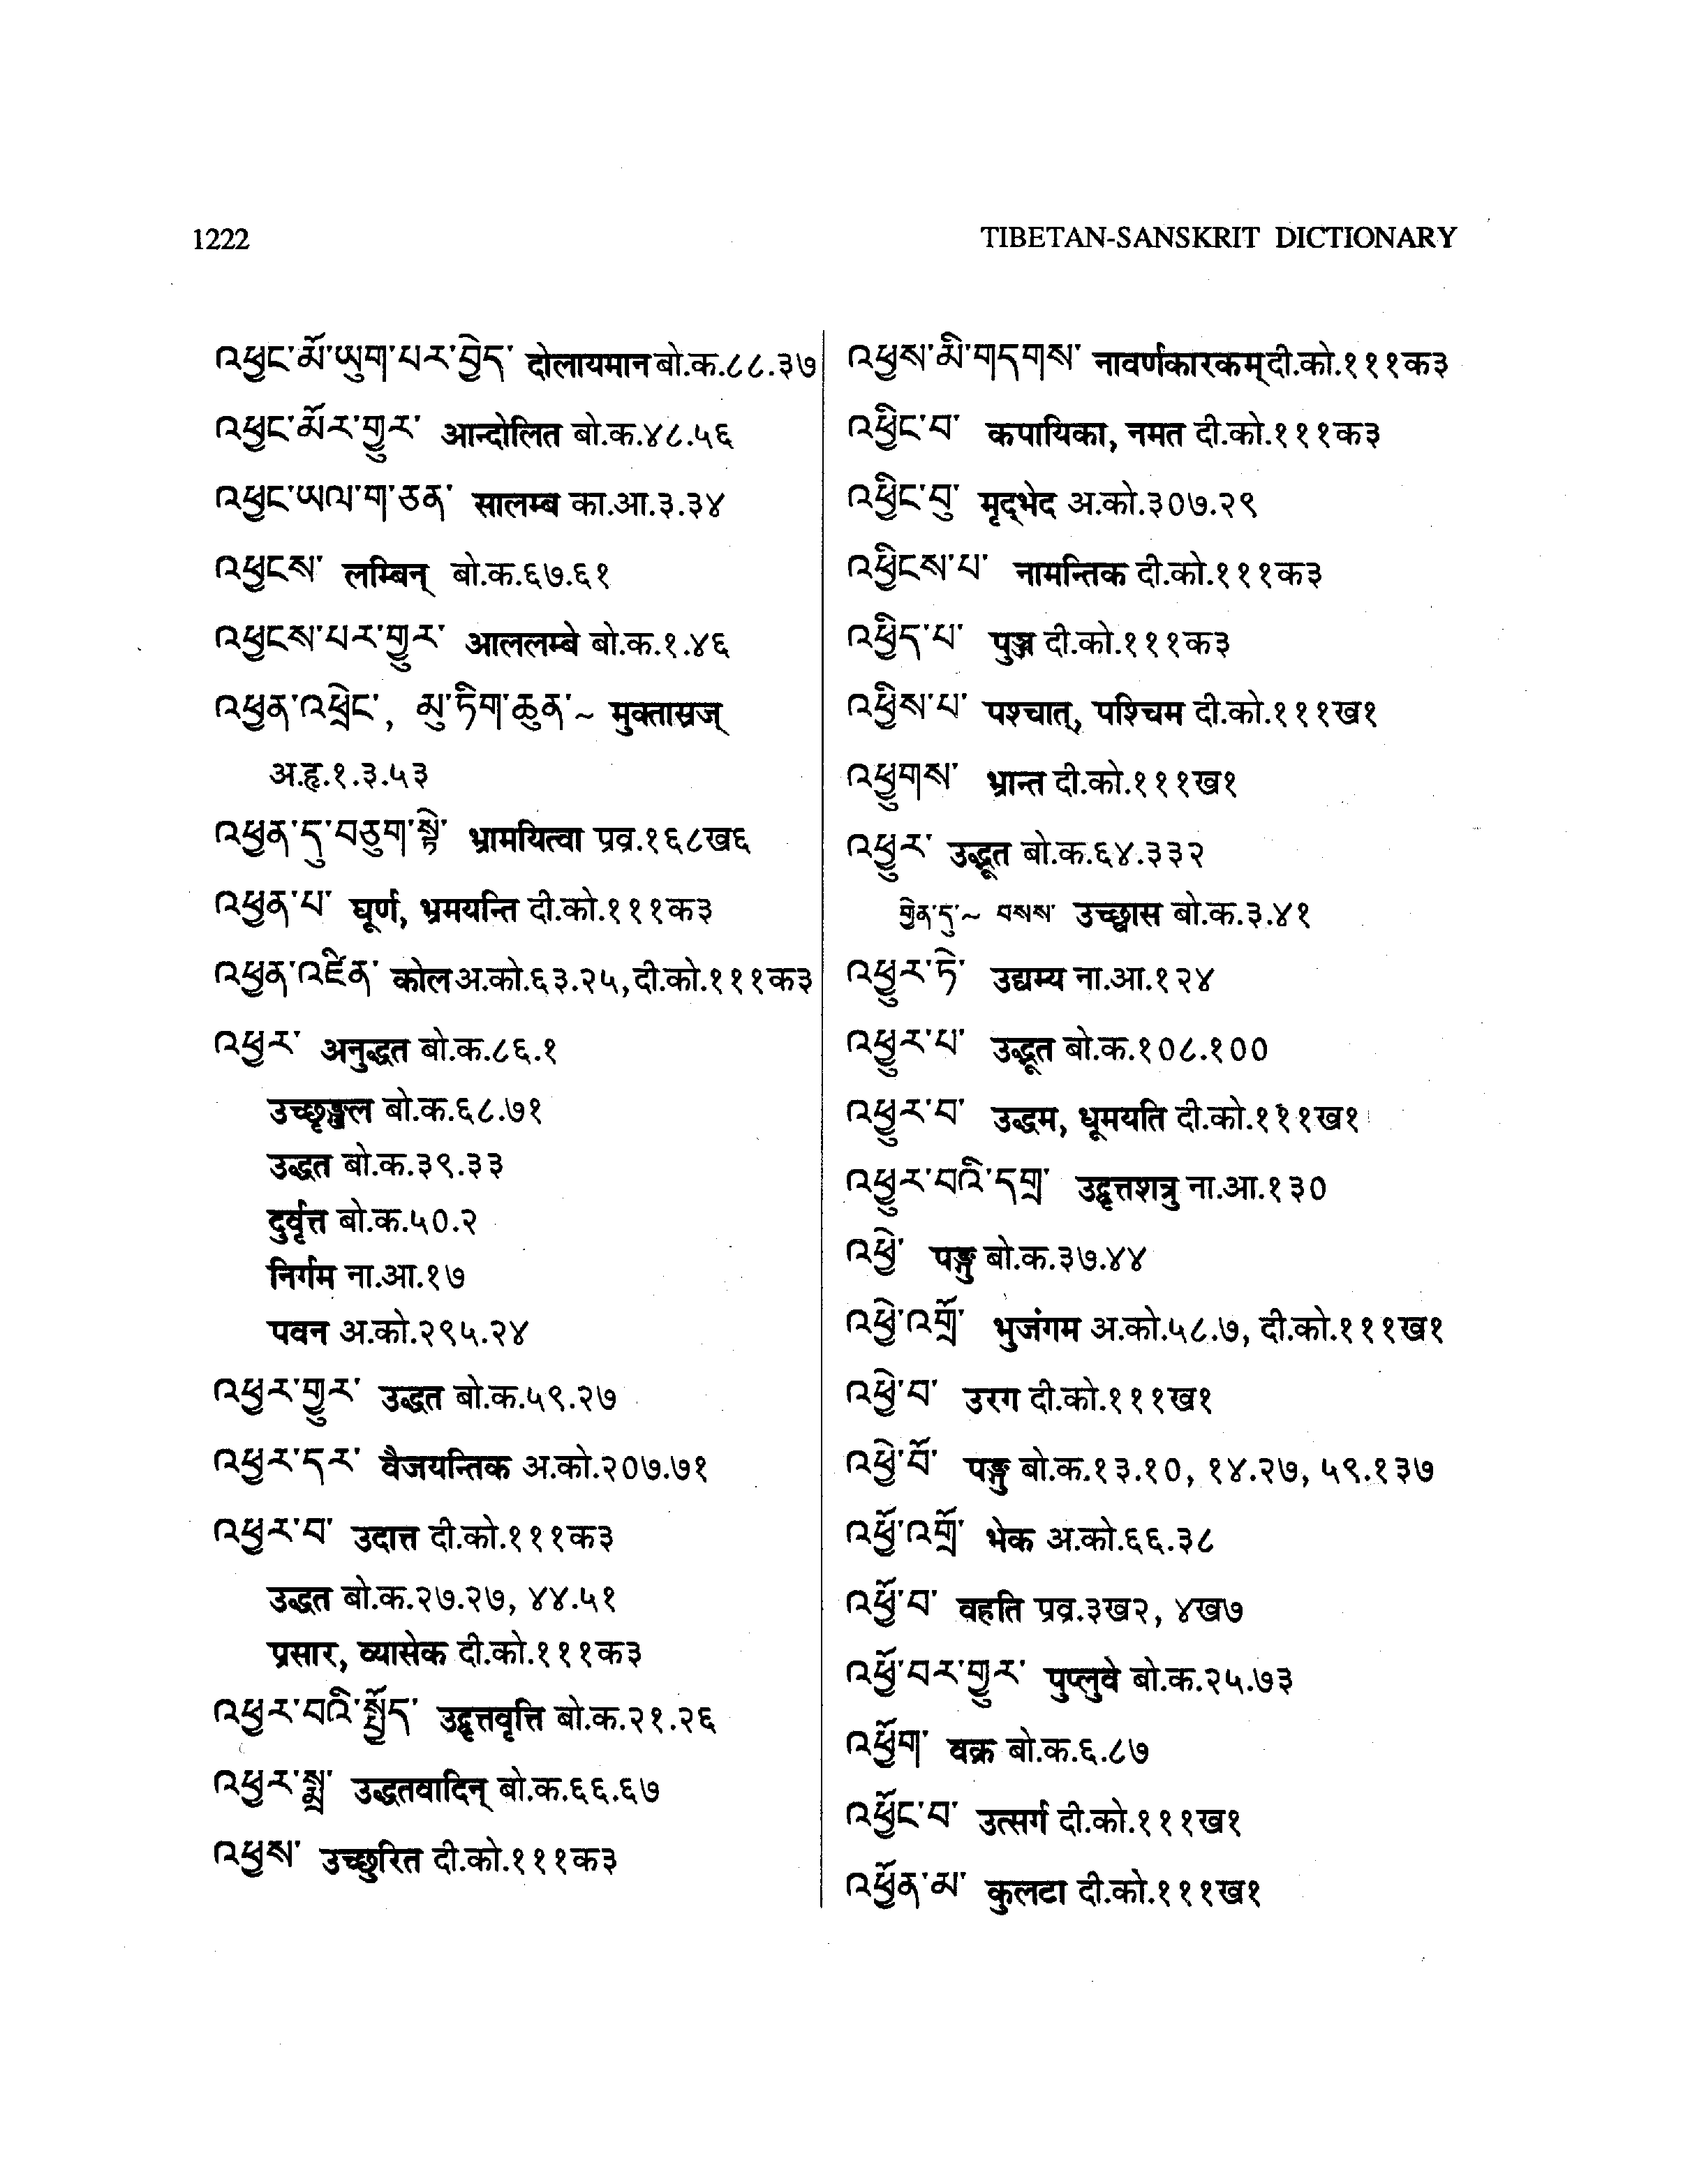 1222
TIBETAN-SANSKRIT DICTIONARY
འཕྱང་མོ་ཡུག་པར་བྱེད་ दोलायमान बो.क.८८.३७
འཕྱང་མོར་གྱུར་ आन्दोलित बो.क.४८.५६
འཕྱང་ཡལ་ག་ཅན་ सालम्ब का.आ.३.३४
འཕྱངས་ लम्बिन् बो.क.६७.६१
འཕྱངས་པར་གྱུར་ आललम्बे बो.क.१.४६
འཕྱན་འཕྲེང་, མུ་ཏིག་ཆུན་~ मुक्तास्रज्
अ.हृ.१.३.५३
འཕྱན་དུ་བཅུག་སྟེ་ भ्रामयित्वा प्रव्र.१६८ख६
འཕྱན་པ་ घूर्ण, भ्रमयन्ति दी.को.१११क३
འཕྱན་འཛིན་ कोल अ.को.६३.२५, दी.को.१११क३
འཕྱར་ अनुद्धत बो.क.८६.१
उच्छृङ्खल बो.क.६८.७१
उद्धत बो.क.३९.३३
दुर्वृत्त बो.क.५०.२
निर्गम ना.आ.१७
पवन अ.को.२९५.२४
འཕྱར་གྱུར་ उद्धत बो.क.५९.२७
འཕྱར་དར་ वैजयन्तिक अ.को.२०७.७१
འཕྱར་བ་ उदात्त दी.को.१११क३
उद्धत बो.क.२७.२७, ४४.५१
प्रसार, व्यासेक दी.को.१११क३
འཕྱར་བའི་སྤྱོད་ उद्वृत्तवृत्ति बो.क.२१.२६
འཕྱར་སྨྲ་ उद्धतवादिन् बो.क.६६.६७
འཕྱས་ उच्छुरित दी.को.१११क३
འཕྱས་མི་གདགས་ नावर्णकारकम् दी.को.१११क३
འཕྱིང་བ་ कपायिका, नमत दी.को.१११क३
འཕྱིང་བུ་ मृद्भेद अ.को.३०७.२९
འཕྱིངས་པ་ नामन्तिक दी.को.१११क३
འཕྱིད་པ་ पुञ्ज दी.को.१११क३
འཕྱིས་པ་ पश्चात्, पश्चिम दी.को.१११ख१
འཕྱུགས་ भ्रान्त दी.को.१११ख१
འཕྱུར་ उद्भूत बो.क.६४.३३२
གྱེན་དུ་~ བསས་ उच्छ्वास बो.क.३.४१
འཕྱུར་ཏེ་ उद्यम्य ना.आ.१२४
འཕྱུར་པ་ उद्भूत बो.क.१०८.१००
འཕྱུར་བ་ उद्धम, धूमयति दी.को.१११ख१
འཕྱུར་བའི་དགྲ་ उद्वृत्तशत्रु ना.आ.१३०
འཕྱེ་ पङ्गु बो.क.३७.४४
འཕྱེ་འགྲོ་ भुजंगम अ.को.५८.७, दी.को.१११ख१
འཕྱེ་བ་ उरग दी.को.१११ख१
འཕྱེ་བོ་ पङ्गु बो.क.१३.१०, १४.२७, ५९.१३७
འཕྱོ་འགྲོ་ भेक अ.को.६६.३८
འཕྱོ་བ་ वहति प्रव्र.३ख२, ४ख७
འཕྱོ་བར་གྱུར་ पुप्लुवे बो.क.२५.७३
འཕྱོག་ वक्र बो.क.६.८७
འཕྱོང་བ་ उत्सर्ग दी.को.१११ख१
འཕྱོན་མ་ कुलटा दी.को.१११ख१